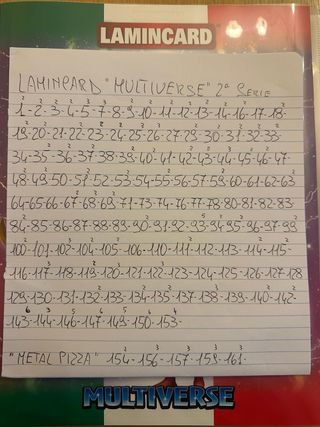 LAMINCARD
LAMINCARD "MULTIVERSE" 2ª SERIE
1-2-3-4-5-7-8-9-10-11-12-13-14-16-17-18-
19-20-21-22-23-24-25-26-27-29-30-31-32-33-
34-35-36-37-38-39-40-41-42-43-44-45-46-47-
48-49-50-51-52-53-54-55-56-57-59-60-61-62-63
64-65-66-67-68-69-71-73-74-76-77-78-80-81-82-83-
84-85-86-87-88-89-90-91-92-93-94-95-96-97-99
100-101-102-104-105-106-110-111-112-113-114-115-
116-117-118-119-120-121-122-123-124-125-126-127-128
129-130-131-132-133-134-135-137-138-139-140-142-
143-144-146-147-149-150-153-
"METAL PIZZA" 154-156-157-159-161-
MULTIVERSE